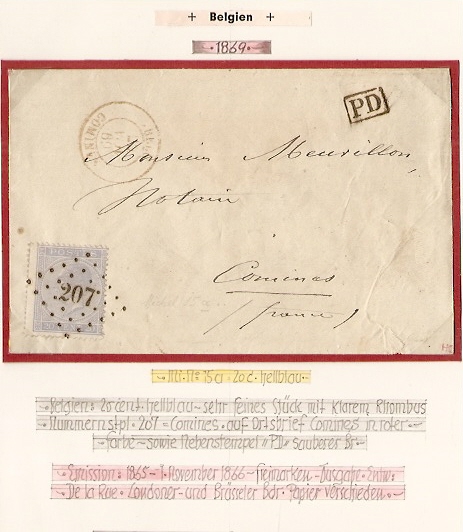 + Belgien +
1869
PD
Monsieur Meurillon,
Notaire
Comines
(france)
207
Mi. No 15a · 20 c. hellblau
Belgien: 20 cent · hellblau - sehr feines Stück mit klarem Rhombus
Nummernstpl · 207 = Comines · auf Ortsbrief Comines in roter
Farbe - sowie Nebenstempel "PD" sauberer Br.
Emission: 1865 - 1. November 1866 - Freimarken - Ausgabe
De la Rue · Londoner - und Brüsseler Bdr. Papier verschieden